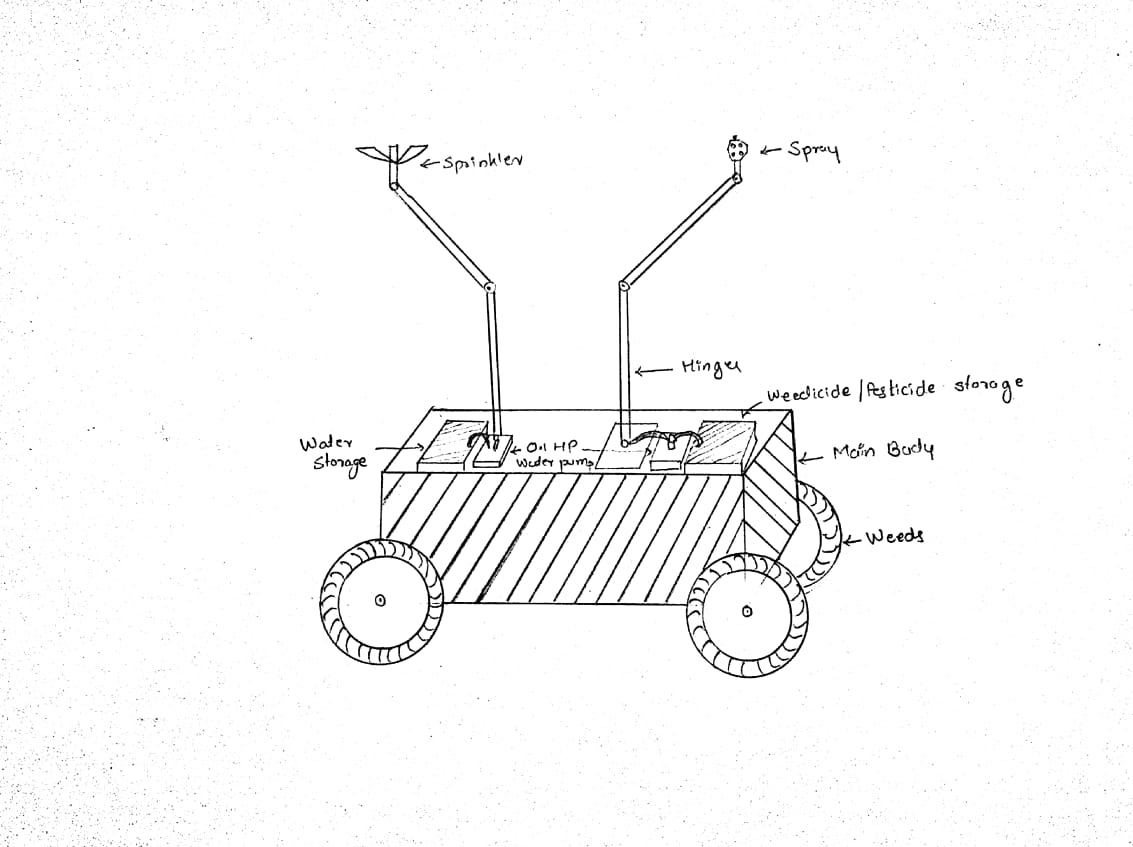 Sprinkler
Spray
Hinges
Weedicide/Pesticide storage
Water
Storage
0.1 HP
Water pump
Main Body
Weeds